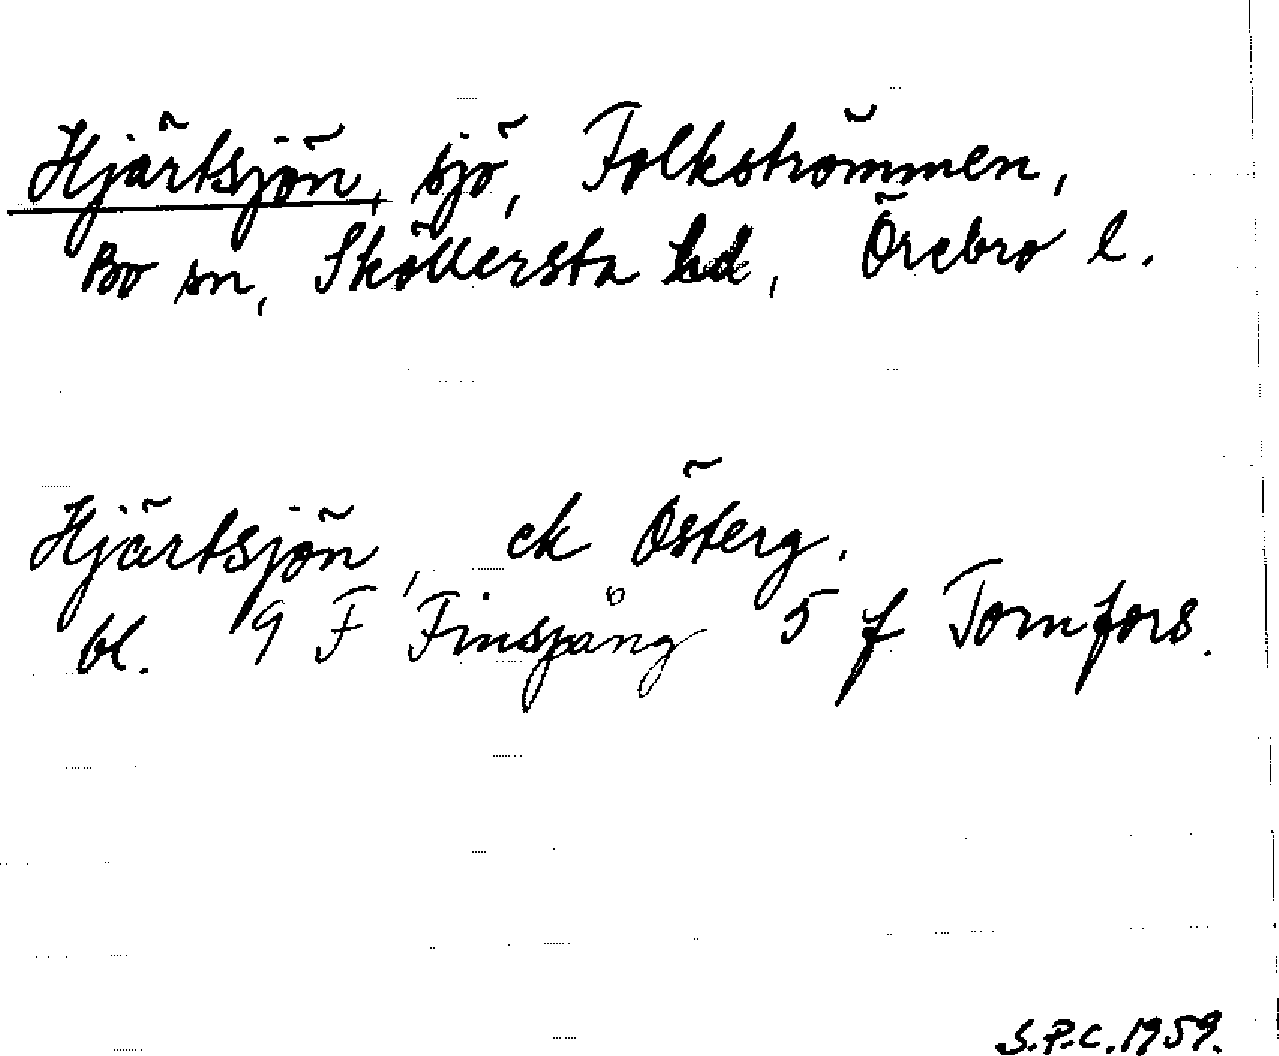 Hjärtsjön, sjö, Folkströmmen,
Bo sn, Sköllersta hd, Örebro l.
Hjärtsjön, ek Österg.
bl. 9 F Finspång 5 f Tornfors.
S.P.C. 1959.